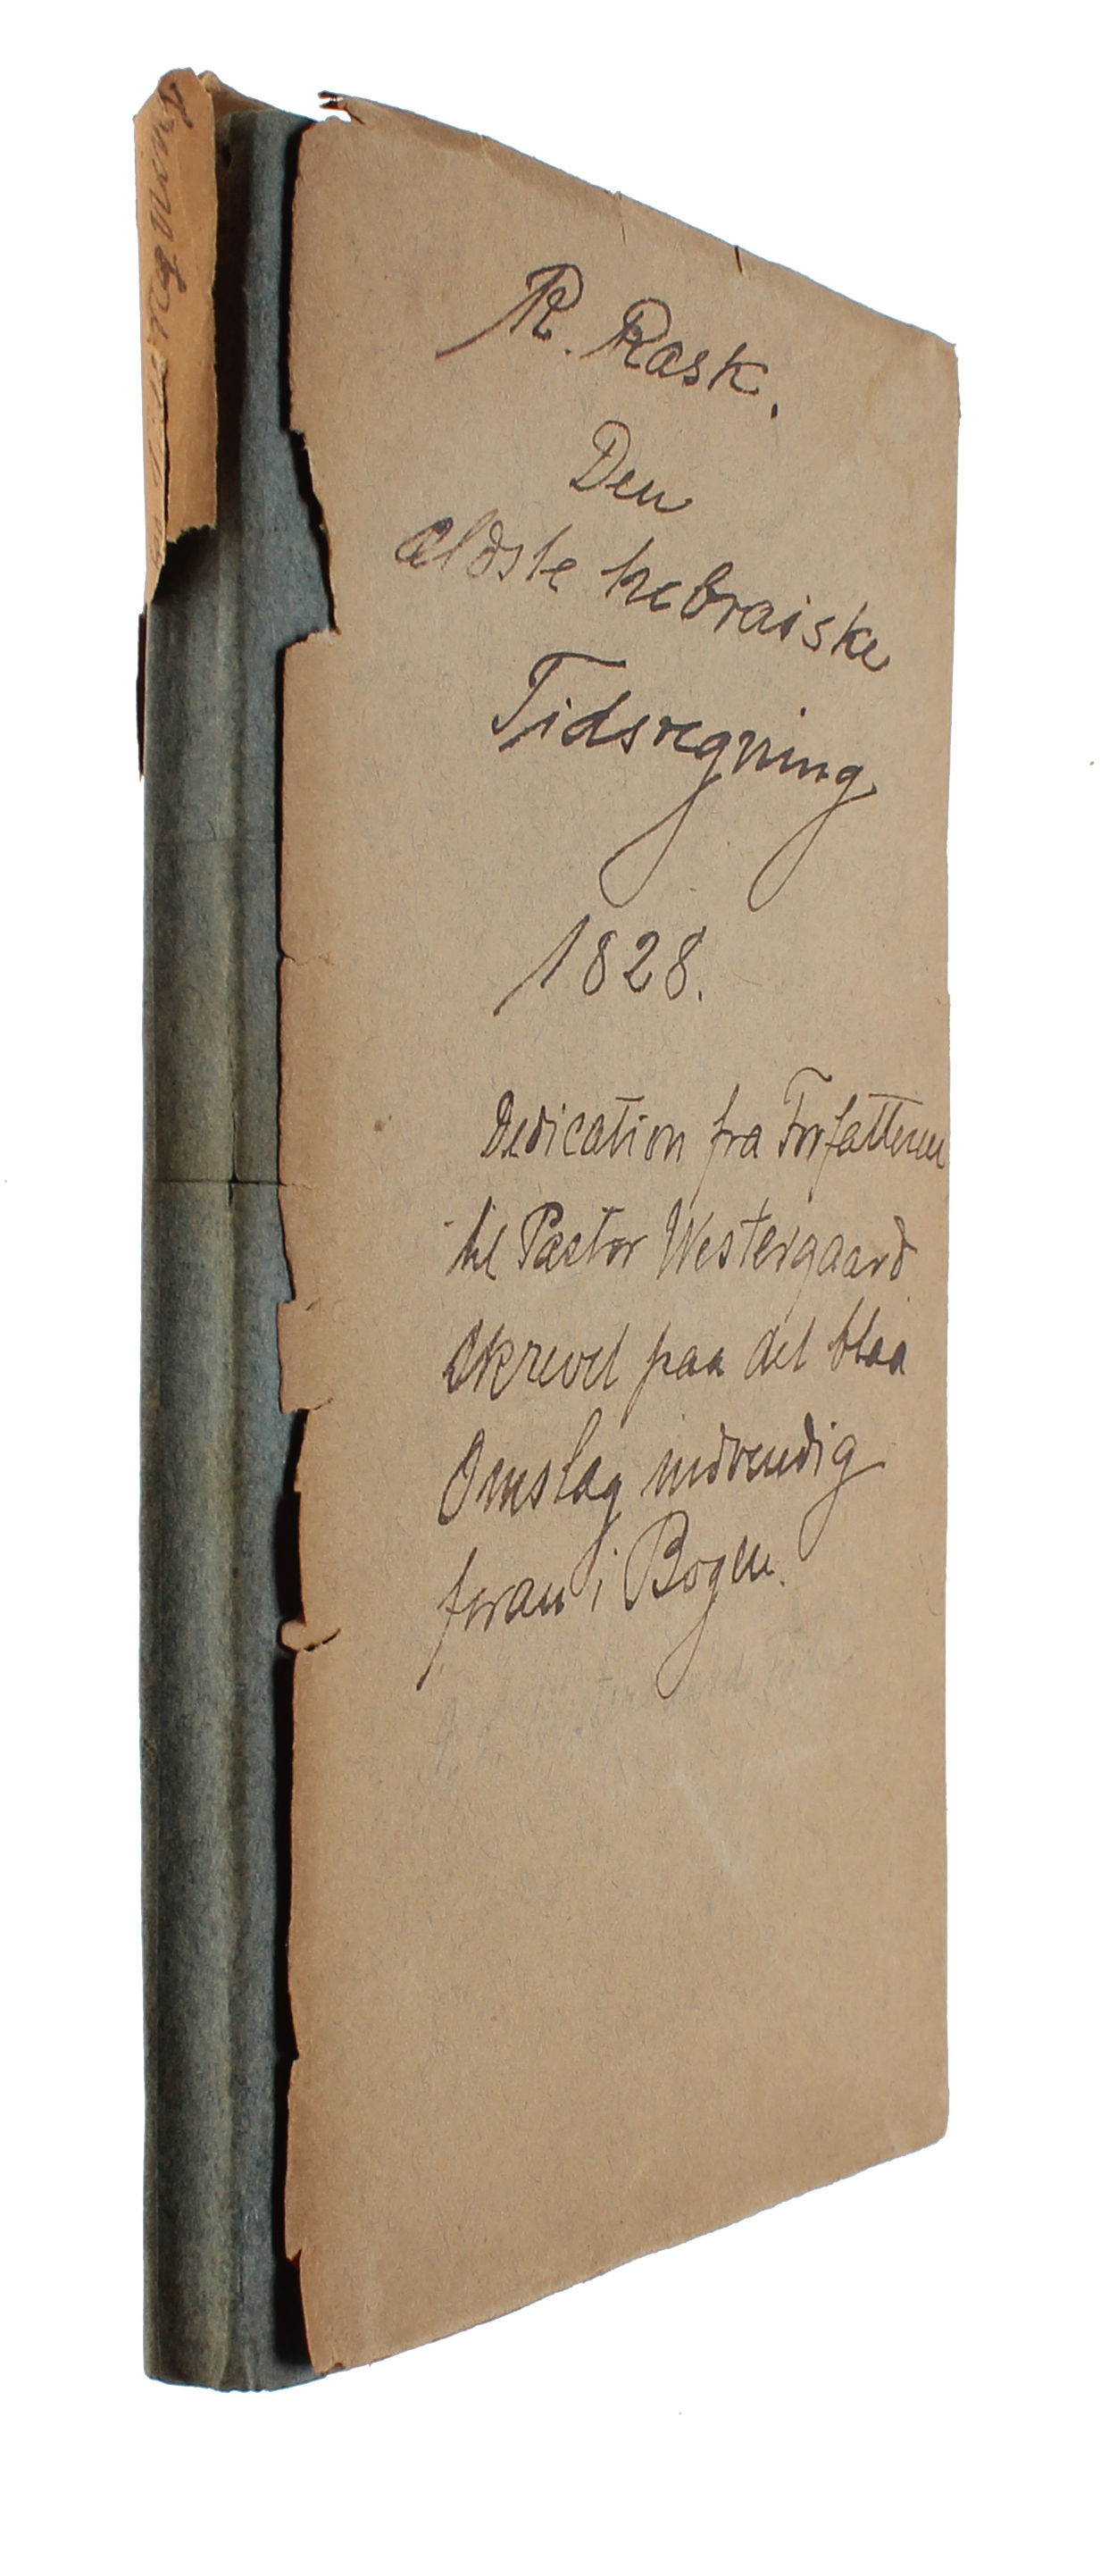 R. Rask.
Den
ældste hebraiske
Tidsregning
1828.
Dedication fra Forfatteren
til Pastor Westergaard
skrevet paa det blaa
Omslag indvendig
foran i Bogen.